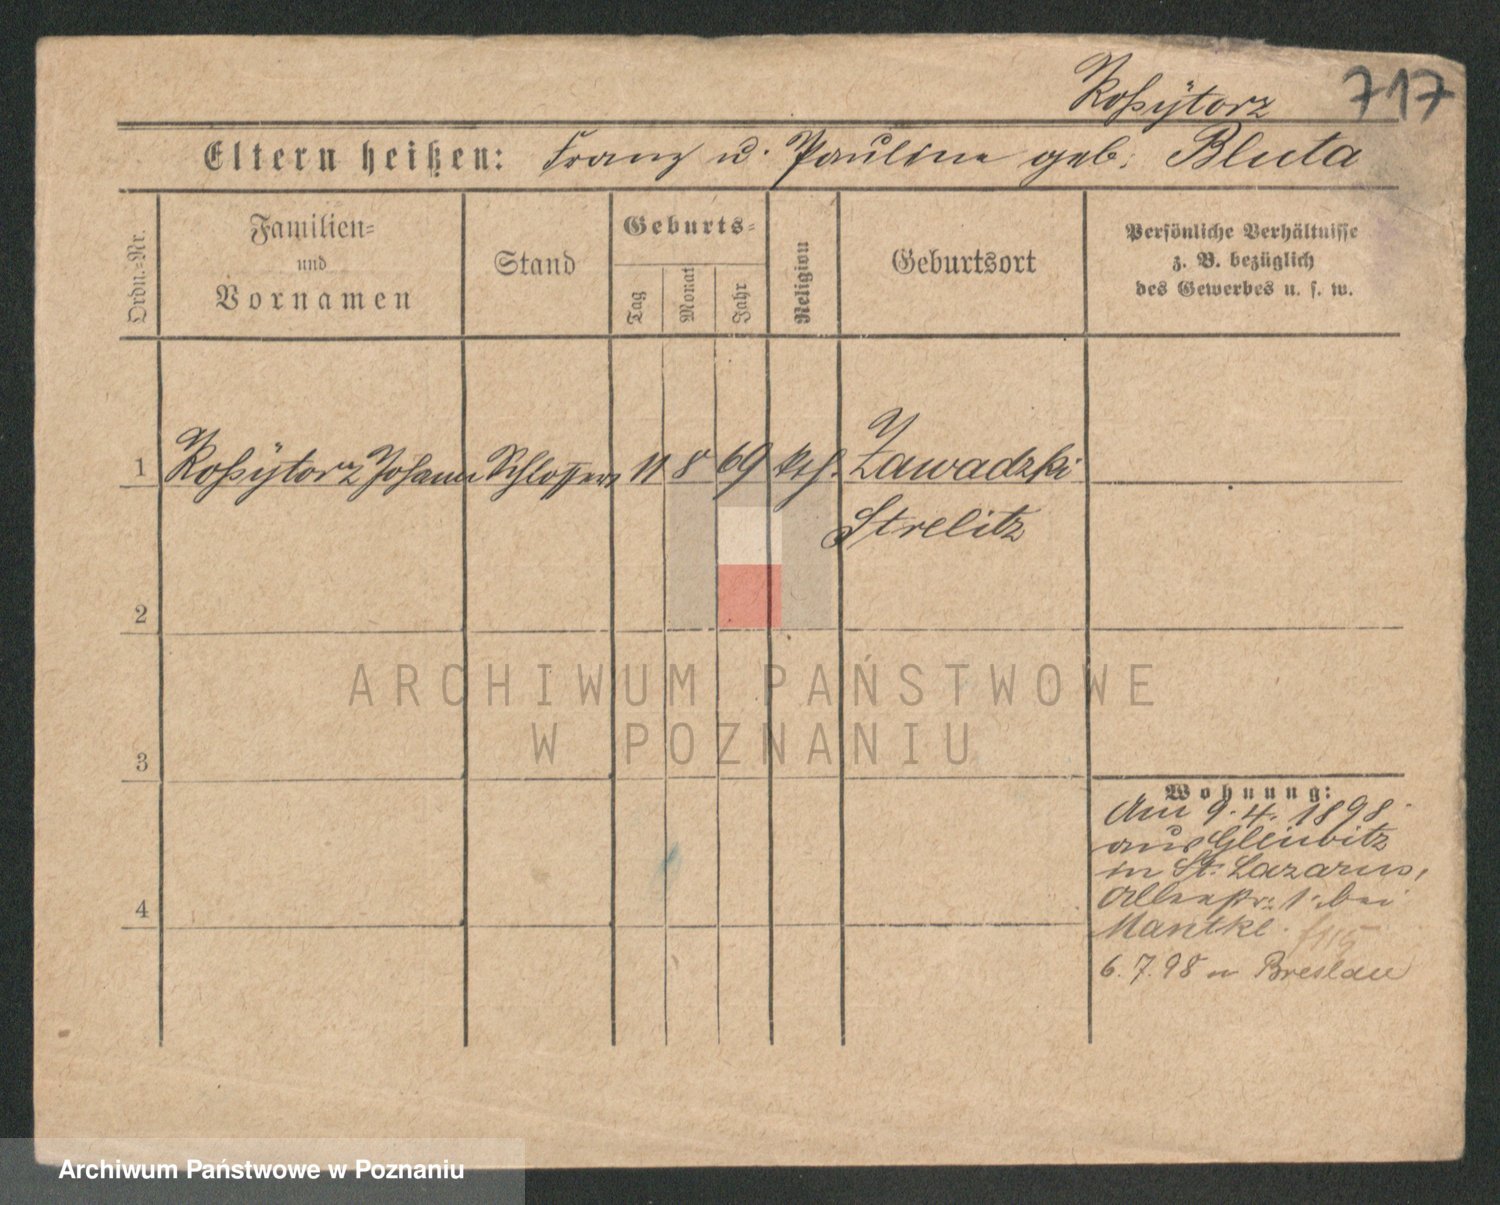 Koßÿtorz 717
Eltern heißen: Franz u. Pauline geb. Bluta
Ordn.-Nr.
Familien-
und
Vornamen
Stand
Geburts-
Tag
Monat
Jahr
Religion
Geburtsort
Persönliche Verhältnisse
z. B. bezüglich
des Gewerbes u. s. w.
1 Koßÿtorz Johann Schlosser 11 8 69 kth. Zawadzki
Strelitz
2
ARCHIWUM PAŃSTWOWE
W POZNANIU
3
Wohnung:
Am 9. 4. 1898
aus Gleiwitz
in St. Lazarus,
1 bei
4
Mantke.
6. 7. 98 n Breslau
Archiwum Państwowe w Poznaniu